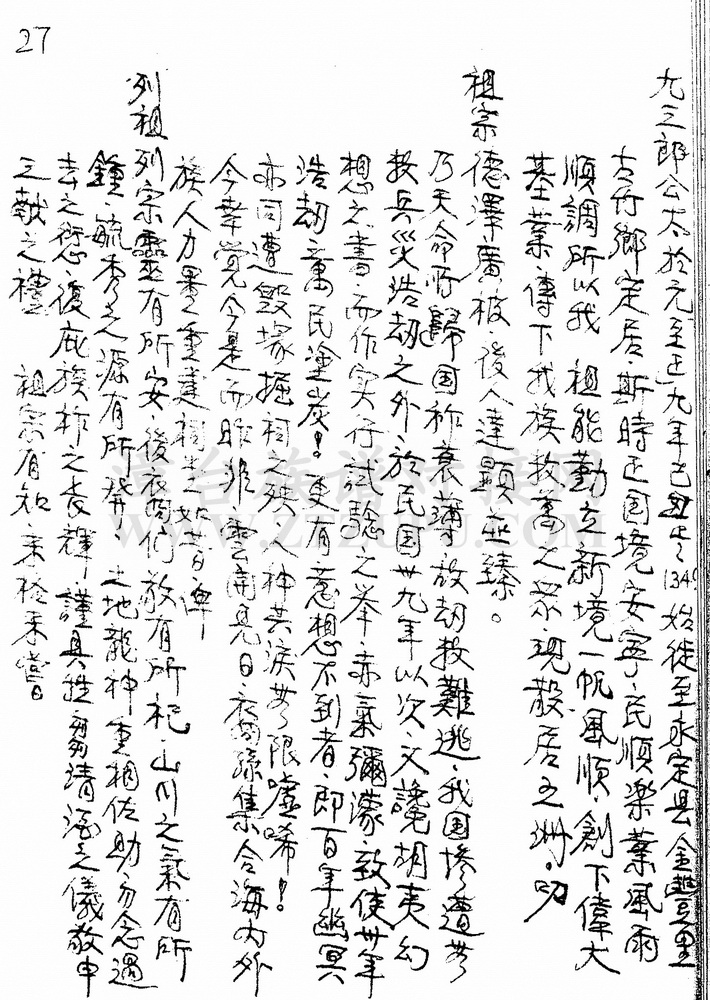 27
九三郎公太於元至正九年己丑(134始徙至永定县金豐里
古竹鄉定居·斯時正国境安寧·民順樂業風雨
順調所以我 祖能勤立新境一帆風順·創下偉大
基業·傳下我族数萬之眾現散居五洲·叨
祖宗德澤廣被·後人達顯並臻。
乃天命所歸国祚衰薄·故劫数難逃·我国慘遭
数兵災浩劫之外·於民国卅九年以次·文讒胡夷幻
想之書·而作实行試驗之举·赤氣彌濛·致使卅年
浩劫萬民塗炭!更有意想不到者·即百年幽冥
亦同遭毀塚掘祠之殃·人神共淚·限噓唏!
今幸覚今是而昨非·雲開見日·裔孫集合海内外
族人力量重建祠
列祖列宗靈有所安·後裔們敬有所祀·山川之氣有所
鍾·毓秀之源有所發·土地龍神重相佐助·勿念過
去之愆·復庇族祚之長輝·謹具牲·清酒之儀敬申
三献之禮 祖宗有知·來格來嘗